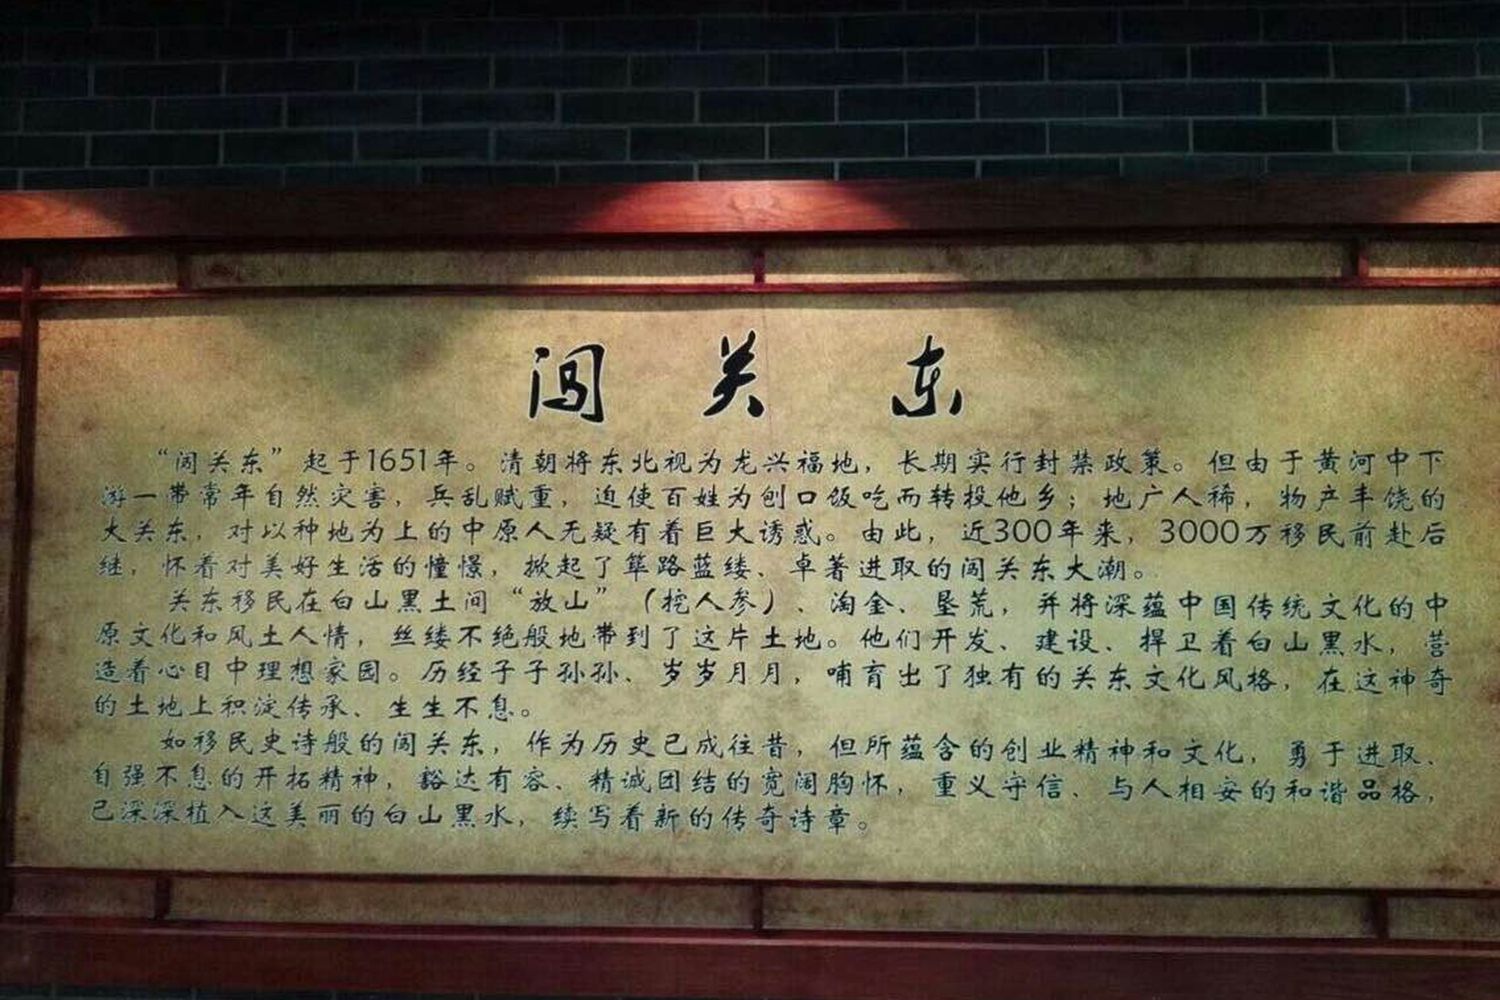 闯关东
“闯关东”起于1651年。清朝将东北视为龙兴福地，长期实行封禁政策。但由于黄河中下
游一带常年自然灾害，兵乱赋重，迫使百姓为刨口饭吃而转投他乡；地广人稀，物产丰饶的
大关东，对以种地为上的中原人无疑有着巨大诱惑。由此，近300年来，3000万移民前赴后
继，怀着对美好生活的憧憬，掀起了筚路蓝缕、卓著进取的闯关东大潮。
关东移民在白山黑土间“放山”（挖人参）、淘金、垦荒，并将深蕴中国传统文化的中
原文化和风土人情，丝缕不绝般地带到了这片土地。他们开发、建设、捍卫着白山黑水，营
造着心目中理想家园。历经子子孙孙、岁岁月月，哺育出了独有的关东文化风格，在这神奇
的土地上积淀传承、生生不息。
如移民史诗般的闯关东，作为历史已成往昔，但所蕴含的创业精神和文化，勇于进取、
自强不息的开拓精神，豁达有容、精诚团结的宽阔胸怀，重义守信、与人相安的和谐品格，
已深深植入这美丽的白山黑水，续写着新的传奇诗章。